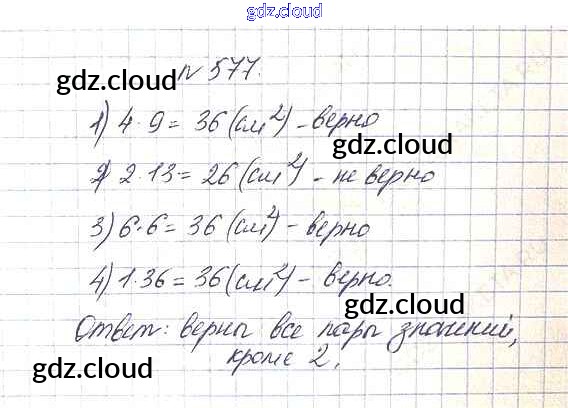 gdz.cloud
gdz.cloud
N 577.
gdz.cloud
1) 4·9 = 36 (см²) - верно
gdz.cloud
2) 2·13 = 26 (см²) - не верно
3) 6·6 = 36 (см²) - верно
4) 1·36 = 36 (см²) - верно.
gdz.cloud
Ответ: верны все пары значений,
кроме 2.
gdz.cloud